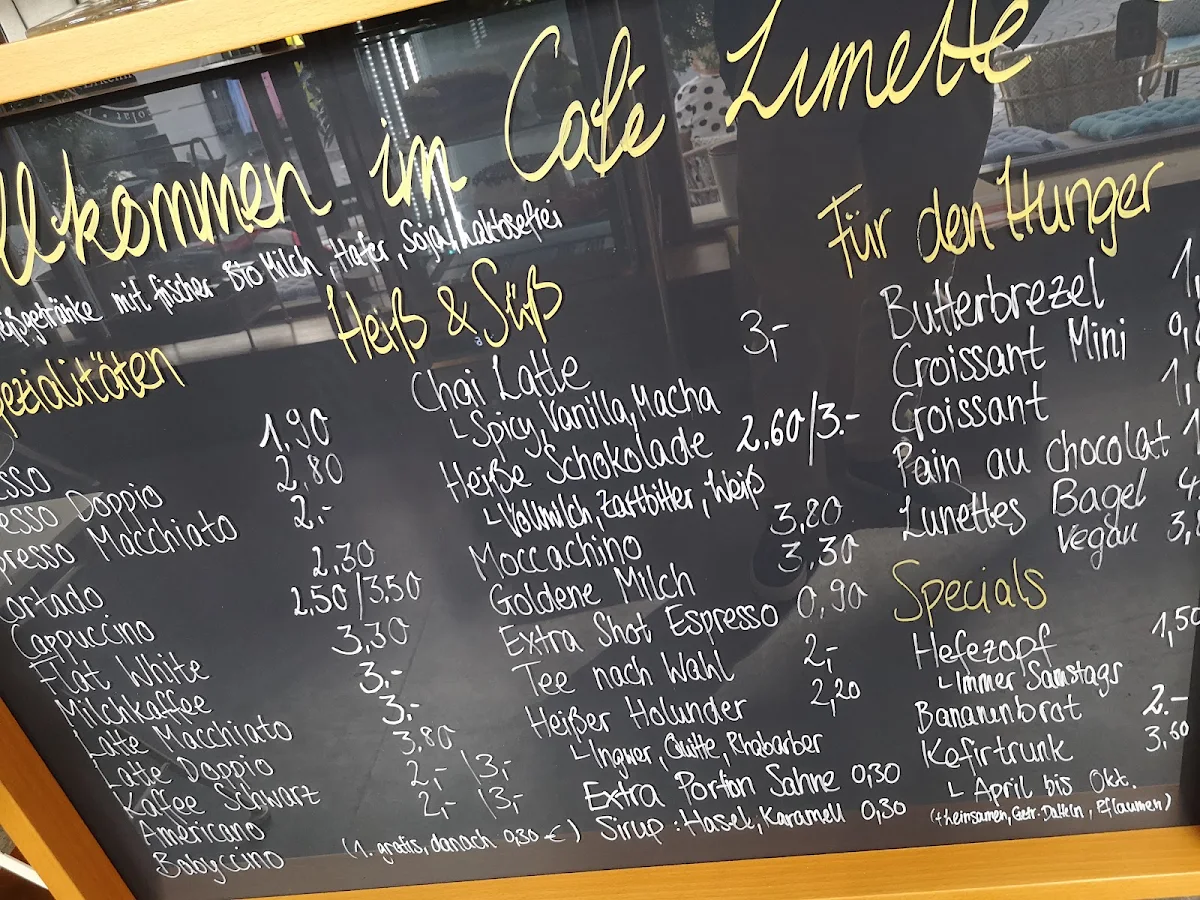 llkommen im Café Lunette
eißgetränke mit frischer Bio Milch, Hafer, Soja, Laktosefrei
pezialitäten
esso 1,90
esso Doppio 2,80
presso Macchiato 2,-
ortado 2,30
Cappuccino 2,50/3,50
Flat White 3,30
Milchkaffee 3,-
Latte Macchiato 3,-
Latte Doppio 3,80
Kaffee Schwarz 2,- \3,-
Americano 2,- \3,-
Babyccino (1. gratis, danach 0,30 €)
Heiß & Süß
Chai Latte 3,-
Spicy, Vanilla, Macha
Heiße Schokolade 2,60/3.-
Vollmilch, Zartbitter, Weiß
Moccachino 3,80
Goldene Milch 3,30
Extra Shot Espresso 0,90
Tee nach Wahl 2,-
Heißer Holunder 2,20
Ingwer, Quitte, Rhabarber
Extra Portion Sahne 0,30
Sirup: Hasel, Karamell 0,30
Für den Hunger
Butterbrezel 1,
Croissant Mini 0,
Croissant 1,
Pain au chocolat 1
Lunettes Bagel 4
Vegan 3,
Specials
Hefezopf 1,50
Immer Samstags
Bananenbrot 2.-
Kefirtrunk 3,60
April bis Okt.
(+Leinsamen, Getr. Datteln, Pflaumen)